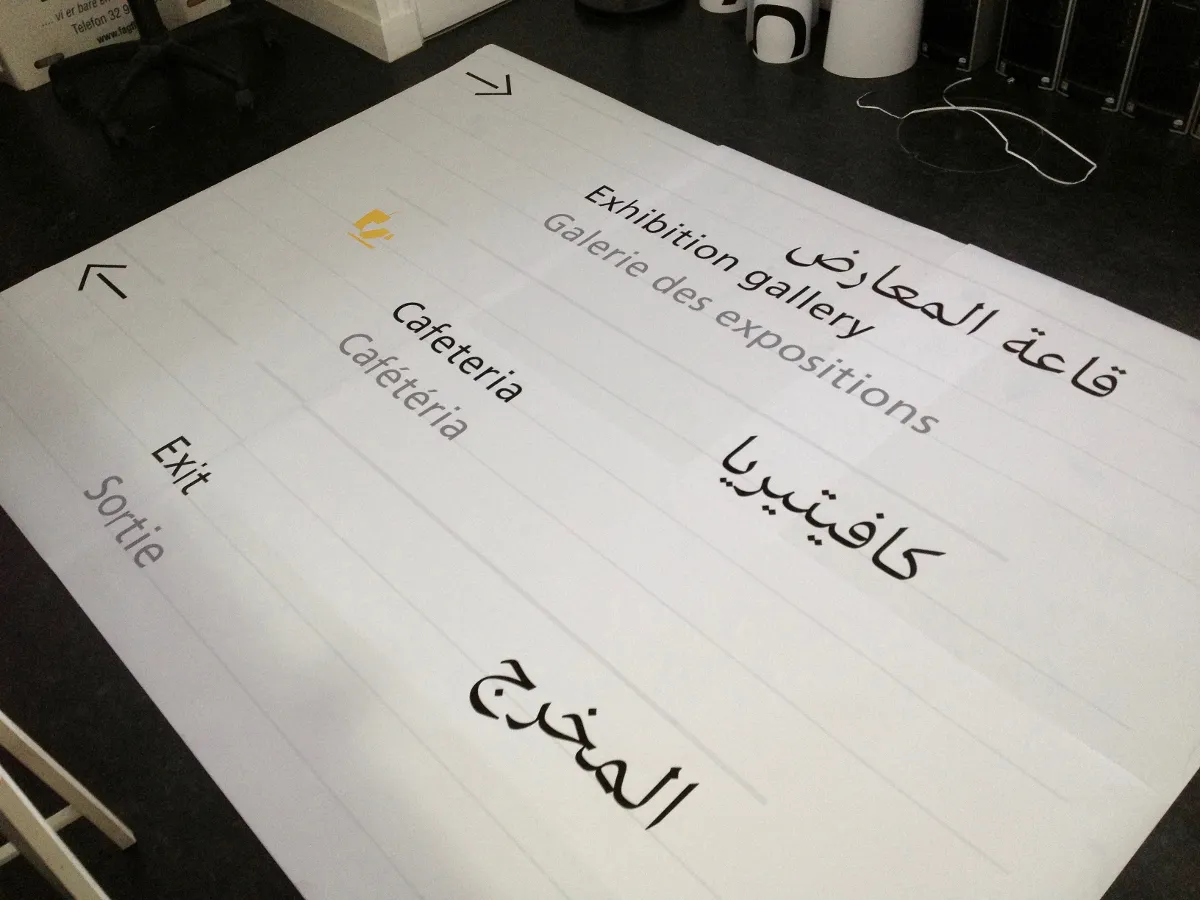 ... vi er bare en
Telefon 32 9
www.fagf
قاعة المعارض
Exhibition gallery
Galerie des expositions
كافيتيريا
Cafeteria
Cafétéria
المخرج
Exit
Sortie